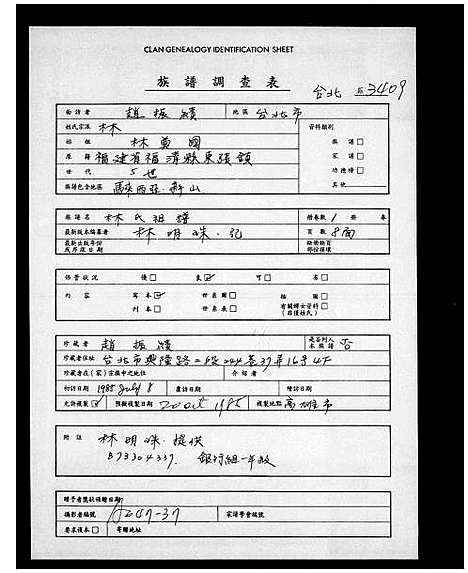 CLAN GENEALOGY IDENTIFICATION SHEET
族譜調查表
台北 3409
訪者 趙振績 地區 台北市
姓氏宗派 林 資料類別
始祖 林萬國 族譜□
原籍 福建省福清縣東張鎮 家譜□
世代 5世 功德榜□
族譜包含地區 馬來西亞. 山 其他
族譜名 林氏祖譜 捲卷數 1 冊 卷
最新版本編纂者 林明咪. 記 頁數 8面
最新出版年份
或序跋日期
保管狀況 優□ 良☑ 可□ 劣□
內容 寫本☑ 世系圖□ 插圖□
刊本□ 世系表□ 有關婦女資料□
珍藏者 趙振績 是否列入本族譜 否
珍藏者住址 台北市興隆路二段244巷37弄16号4F
珍藏者在(家)宗族中之地位 介紹者
初訪日期 1985 July 8 重訪日期 續訪日期
允許複製☑ 預擬複製日期 20 oct 1985 複製地點 高雄市
附註 林明咪. 提供
B73304337. 銀行組一年級
贈予者暨收領贈日期
攝影者編號 A247-37 家譜學會編號
要求複本□ 寄贈地址